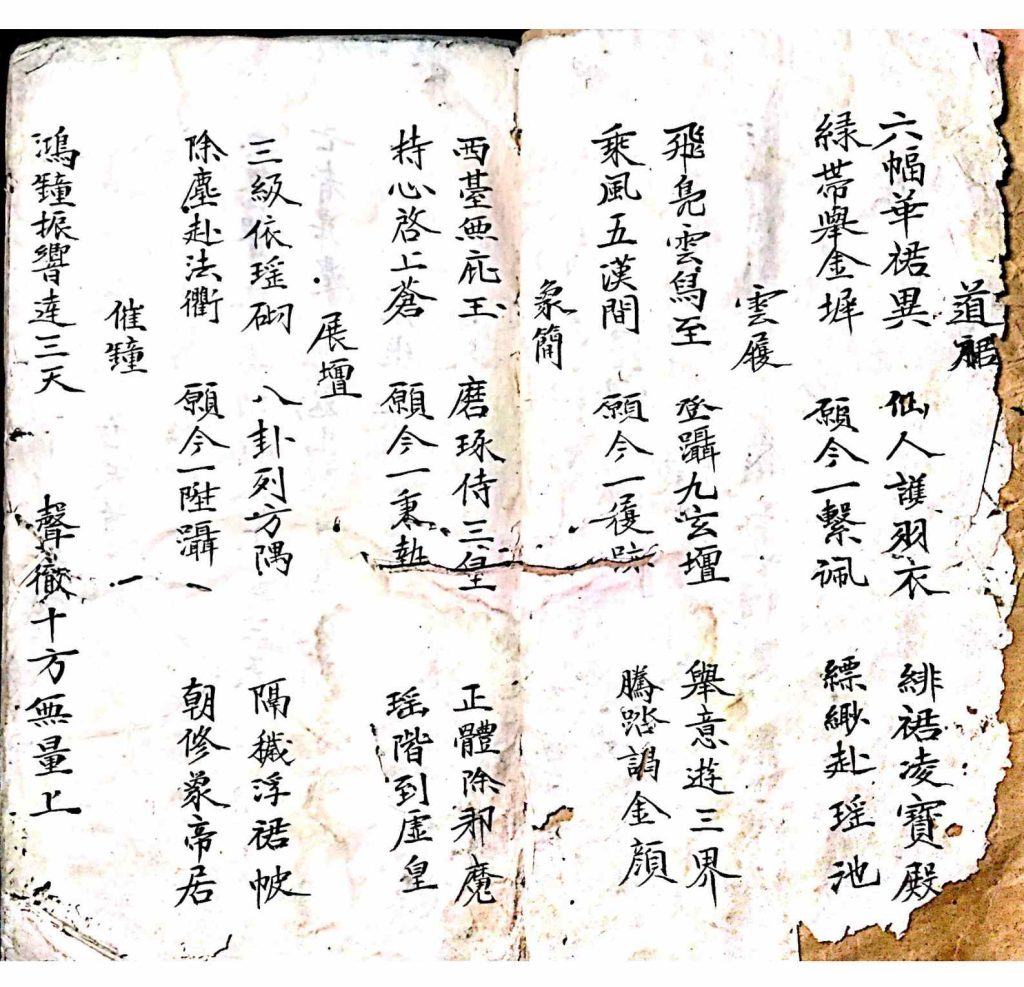 道裙
六幅華裙異 仙人護羽衣 緋裙凌寶殿
緑帶舉金墀 願今一繫珮 縹緲赴瑶池
雲履
飛鳧雲舃至 登躡九玄壇 舉意遊三界
乘風五漢間 願今一履踪 騰踏謁金顔
象簡
西臺無庇玉 磨琢侍三皇 正體除邪魔
持心啓上蒼 願今一秉執 瑶階到虚皇
展壇
三級依瑶砌 八卦列方隅 隔穢浮裙帔
除塵赴法衢 願今一陞躡 朝修象帝居
催鐘
鴻鐘振響達三天 聲徹十方無量上